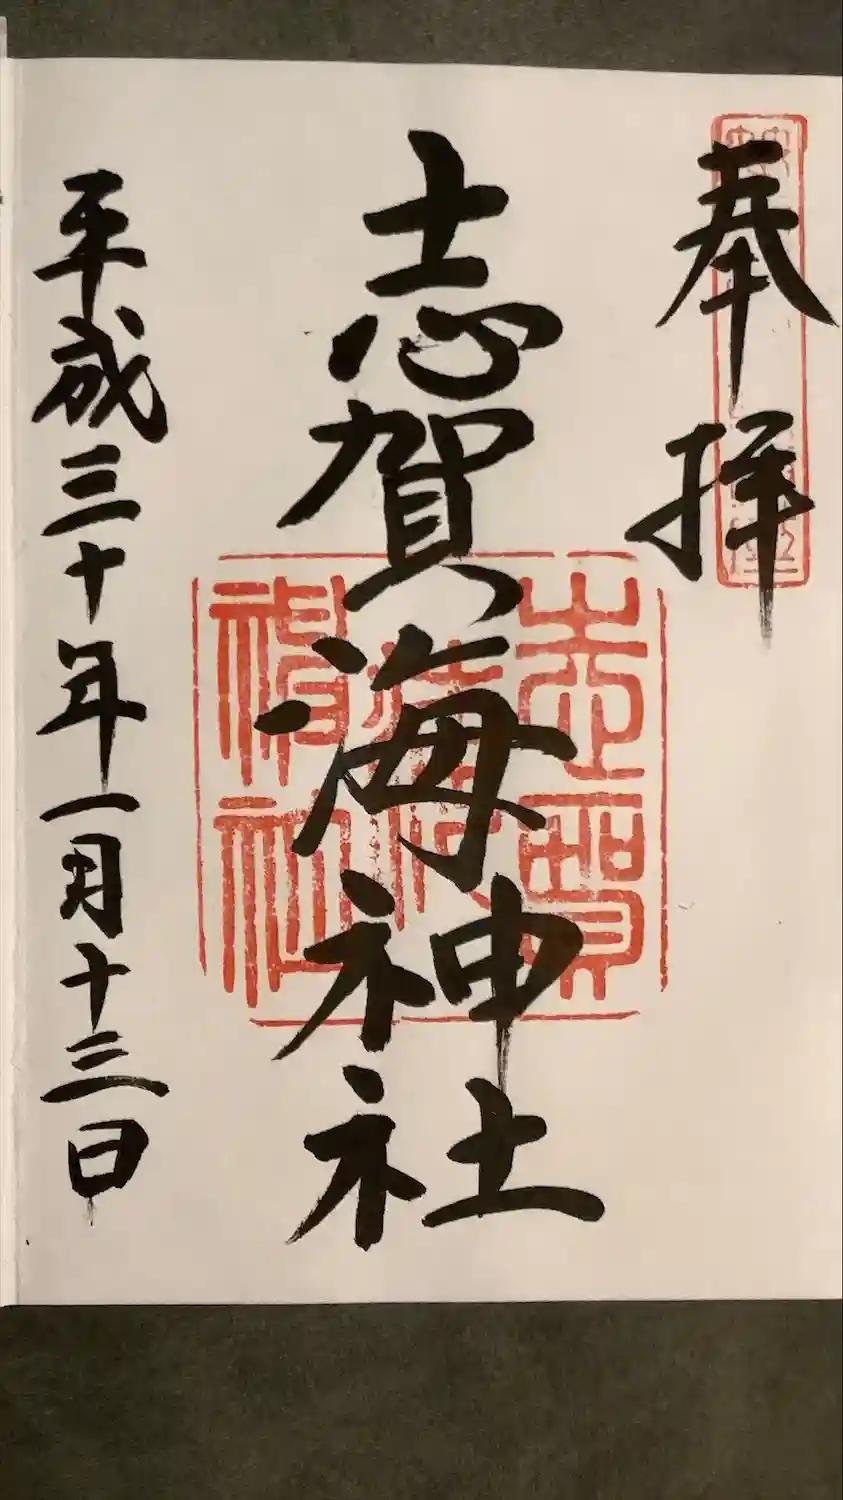 奉拝
志賀海神社
平成三十年一月十三日
志賀海神社